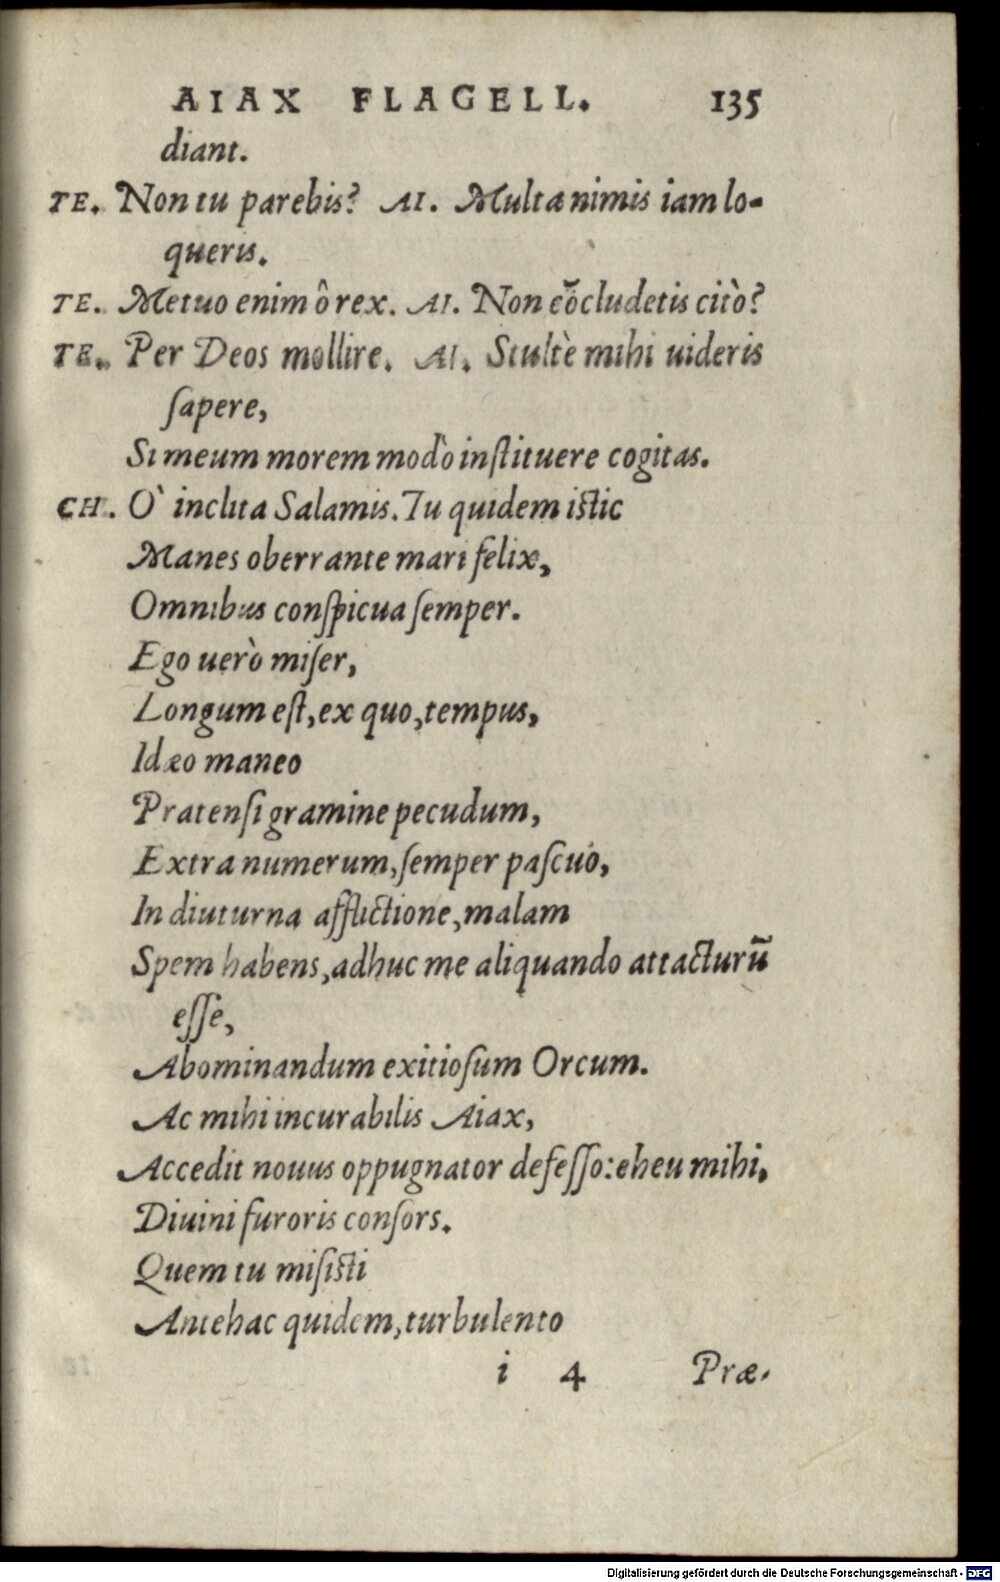 AIAX FLAGELL. 135
diant.
TE. Non tu parebis? AI. Multa nimis iam lo-
queris.
TE. Metuo enim ô rex. AI. Non cōcludetis citò?
TE. Per Deos mollire. AI. Stultè mihi uideris
sapere,
Si meum morem modò instituere cogitas.
CH. O` inclita Salamis. Tu quidem istic
Manes oberrante mari felix,
Omnibus conspicua semper.
Ego uerò miser,
Longum est, ex quo, tempus,
Idæo maneo
Pratensi gramine pecudum,
Extra numerum, semper pascuo,
In diuturna afflictione, malam
Spem habens, adhuc me aliquando attacturū
esse,
Abominandum exitiosum Orcum.
Ac mihi incurabilis Aiax,
Accedit nouus oppugnator defesso: eheu mihi,
Diuini furoris consors.
Quem tu misisti
Antehac quidem, turbulento
i 4 Præ-
Digitalisierung gefördert durch die Deutsche Forschungsgemeinschaft - DFG